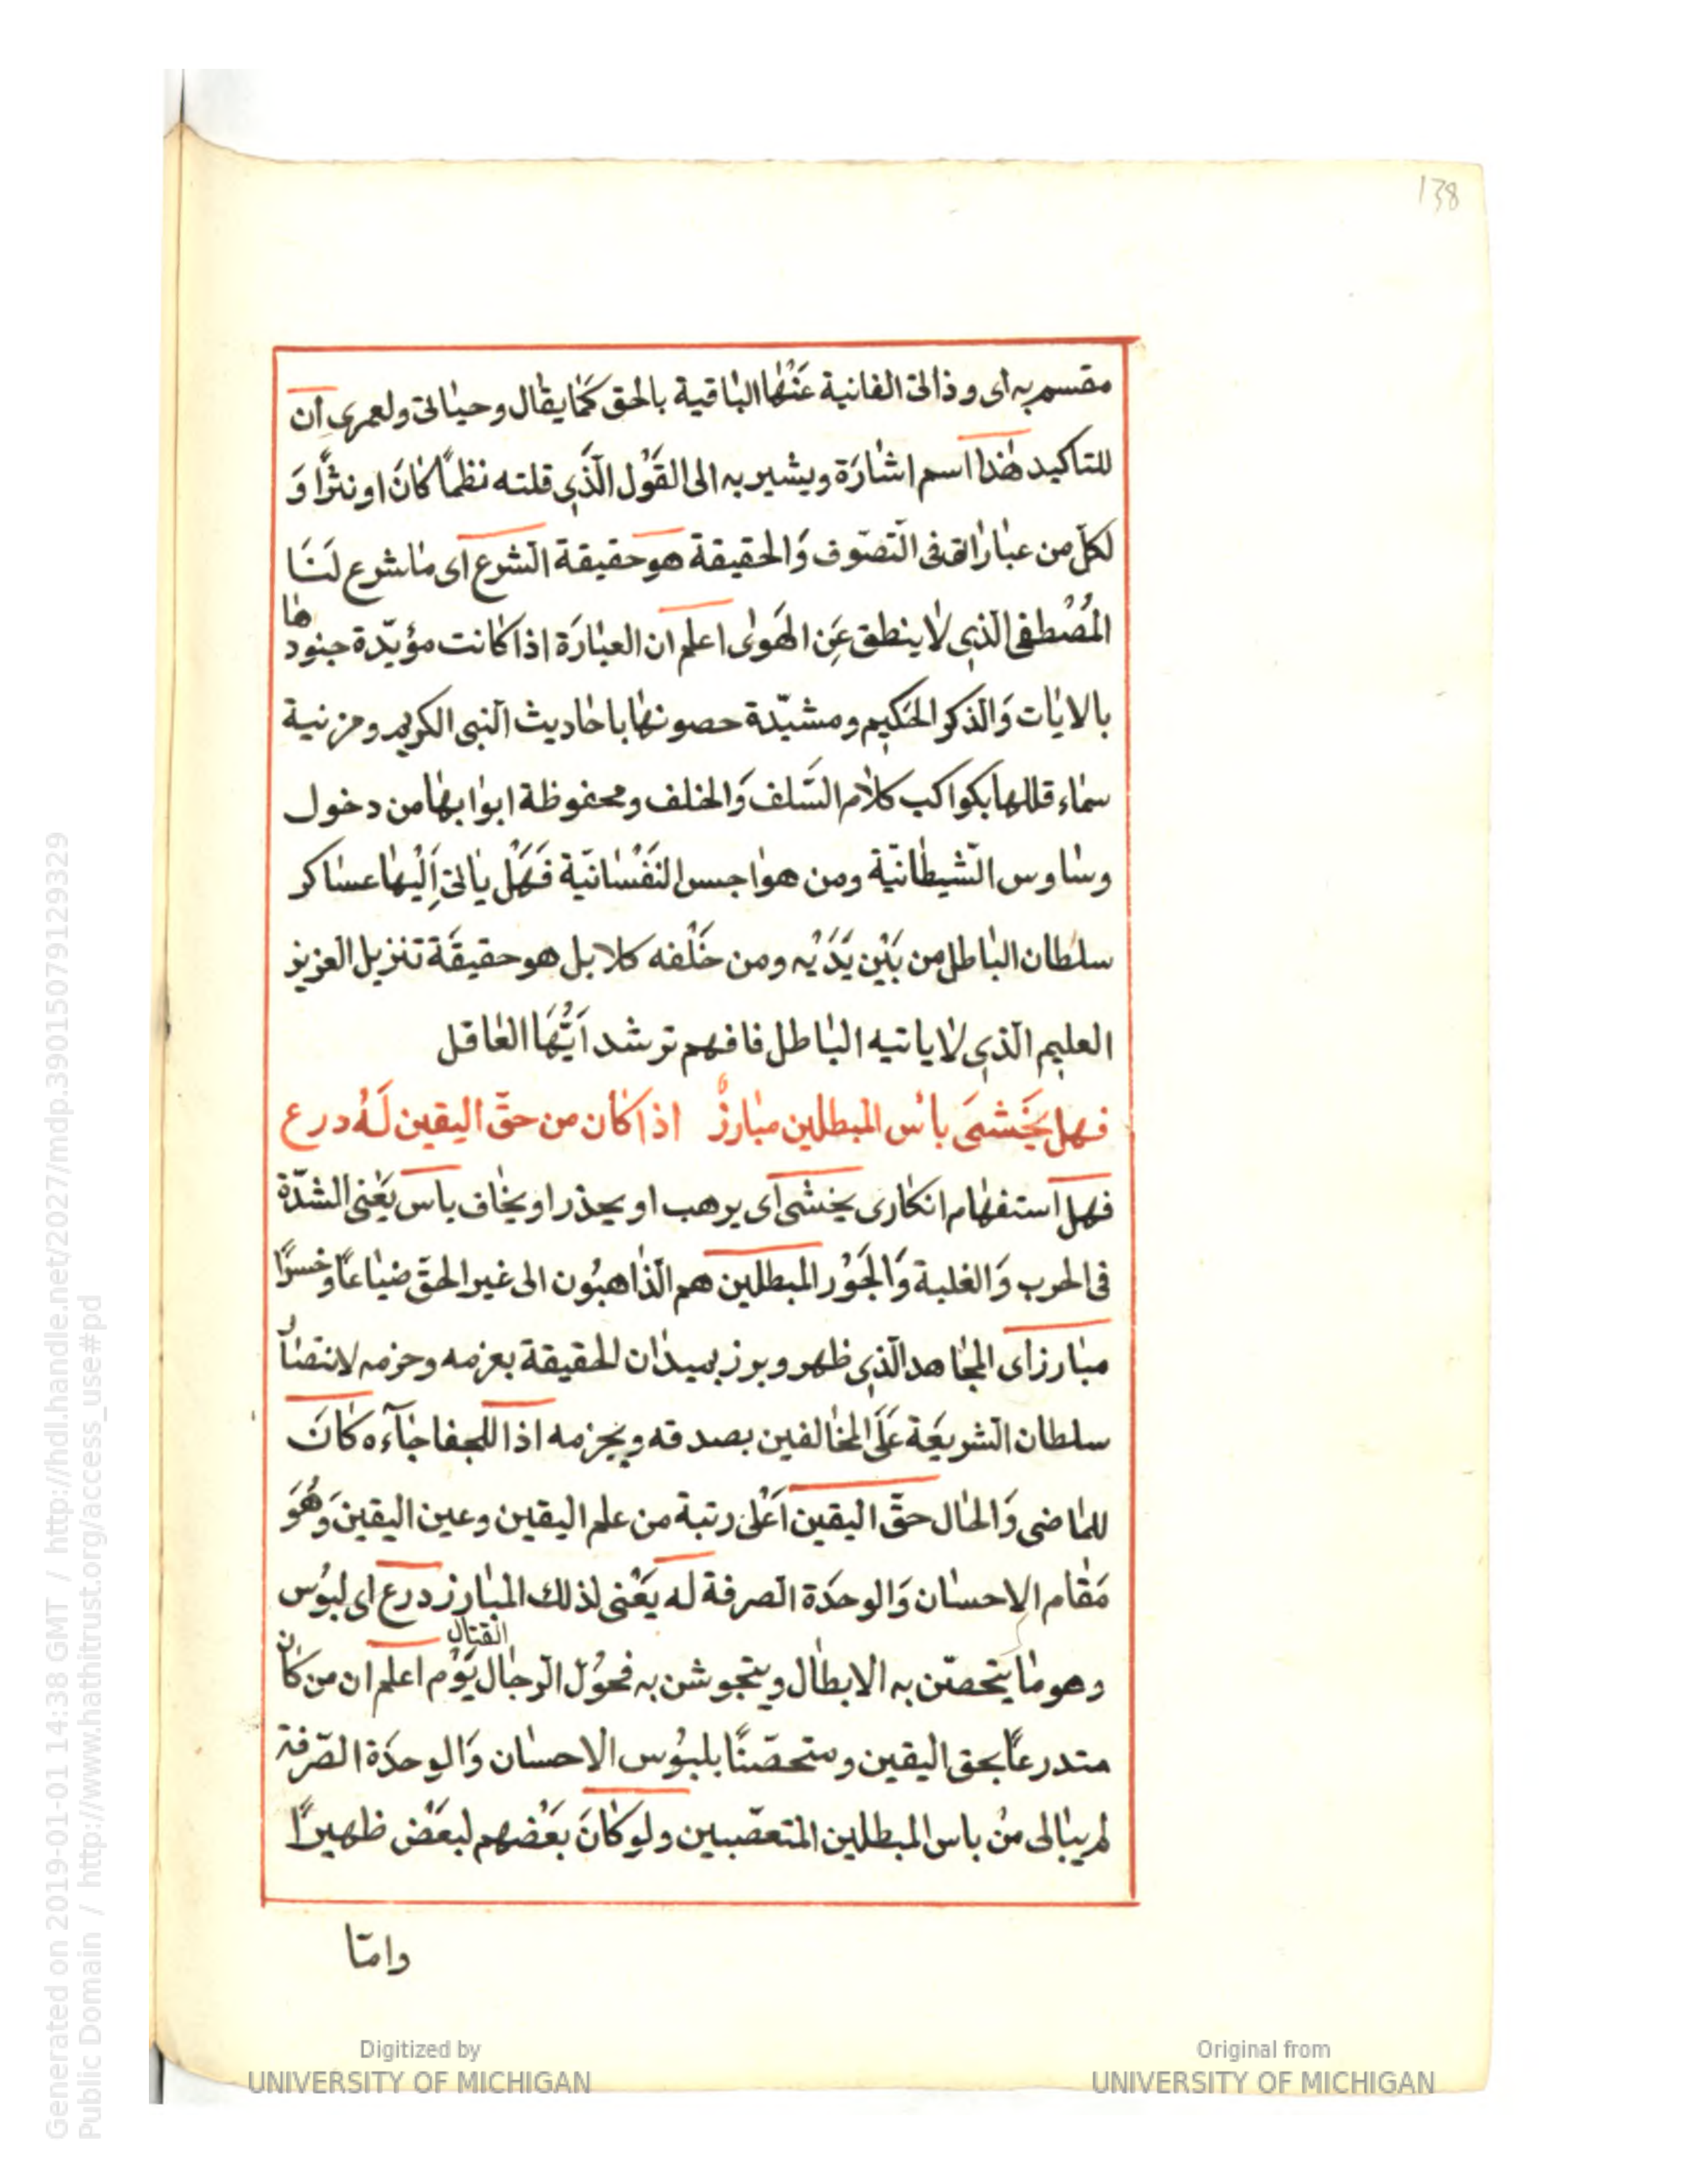 138
مقسم به اى وذاتى الفانية عَنْها الباقية بالحق كَما يقال وحياتى ولعمرى اِن
للتاكيد هٰذا اسم اشارَة ويشير به الى القَوْل الّذَى قلته نظماً كانَ او نثرًا وَ
لكلّ من عباراتى فى التّصوّف وَالحقيقة هو حقيقة الشرع اى ما شرع لنَا
المُصْطفى الّذى لا ينطق عَنِ الهَوىٰ اعلم ان العبارَة اذا كانت مؤيّدة جنودها
بالايات وَالذكر الحَكيم ومشيّدة حصونها باحاديث النبى الكريم ومزنية
سماء قللها بكواكب كلام السَّلف وَالخلف ومحفوظة ابوابها من دخول
وساوس الشيطانيّة ومن هواجس النَفْسانيّة فَهَل ياتى اِلَيْها عساكر
سلطان الباطل من بَيْن يَدَيْه ومن خَلْفه كلا بل هو حقيقَة تنزيل العزيز
العليم الّذى لا ياتيه الباطل فافهم ترشد اَيُّهَا العاقل
فهل يَخْشىَ باْس المبطلين مبارزٌ اذا كان من حقّ اليقين لَهُ درع
فهل استفهام انكارى يخشى اى يرهب او يحذر او يخاف باس يَعْنى الشدّة
فى الحرب وَالغلبة وَالجَوْر المبطلين هم الّذاهبُون الى غير الحقّ ضياعاً وخسرًا
مبارز اى المجاهد الّذى ظهر وبرز بميدان الحقيقة بعزمه وحزمه لانتصار
سلطان الشريعَة عَلَى المخالفين بصدقه وبجزمه اذا للجفاجآءه كانَ
للماضى وَالحال حقّ اليقين اَعْلى رتبة من علم اليقين وعين اليقين وَهُوَ
مَقام الاحسان وَالوحدَة الصرفة له يَعْنى لذلك المبارز درع اى لبوُس
وهو ما يتحصّن به الابطال ويتجوشن به فحوُل الرجال يَوْم القتال اعلم ان من كان
متدرعاً بحق اليقين ومتحصّنًا بلبوُس الاحسان وَالوحدَة الصّرفة
لم يبالى منْ باس المبطلين المتعصّبين ولو كانَ بَعْضهم لبَعْض ظهيرًا
وامّا
Generated on 2019-01-01 14:38 GMT / http://hdl.handle.net/2027/mdp.39015079129329
Public Domain / http://www.hathitrust.org/access_use#pd
Digitized by
UNIVERSITY OF MICHIGAN
Original from
UNIVERSITY OF MICHIGAN